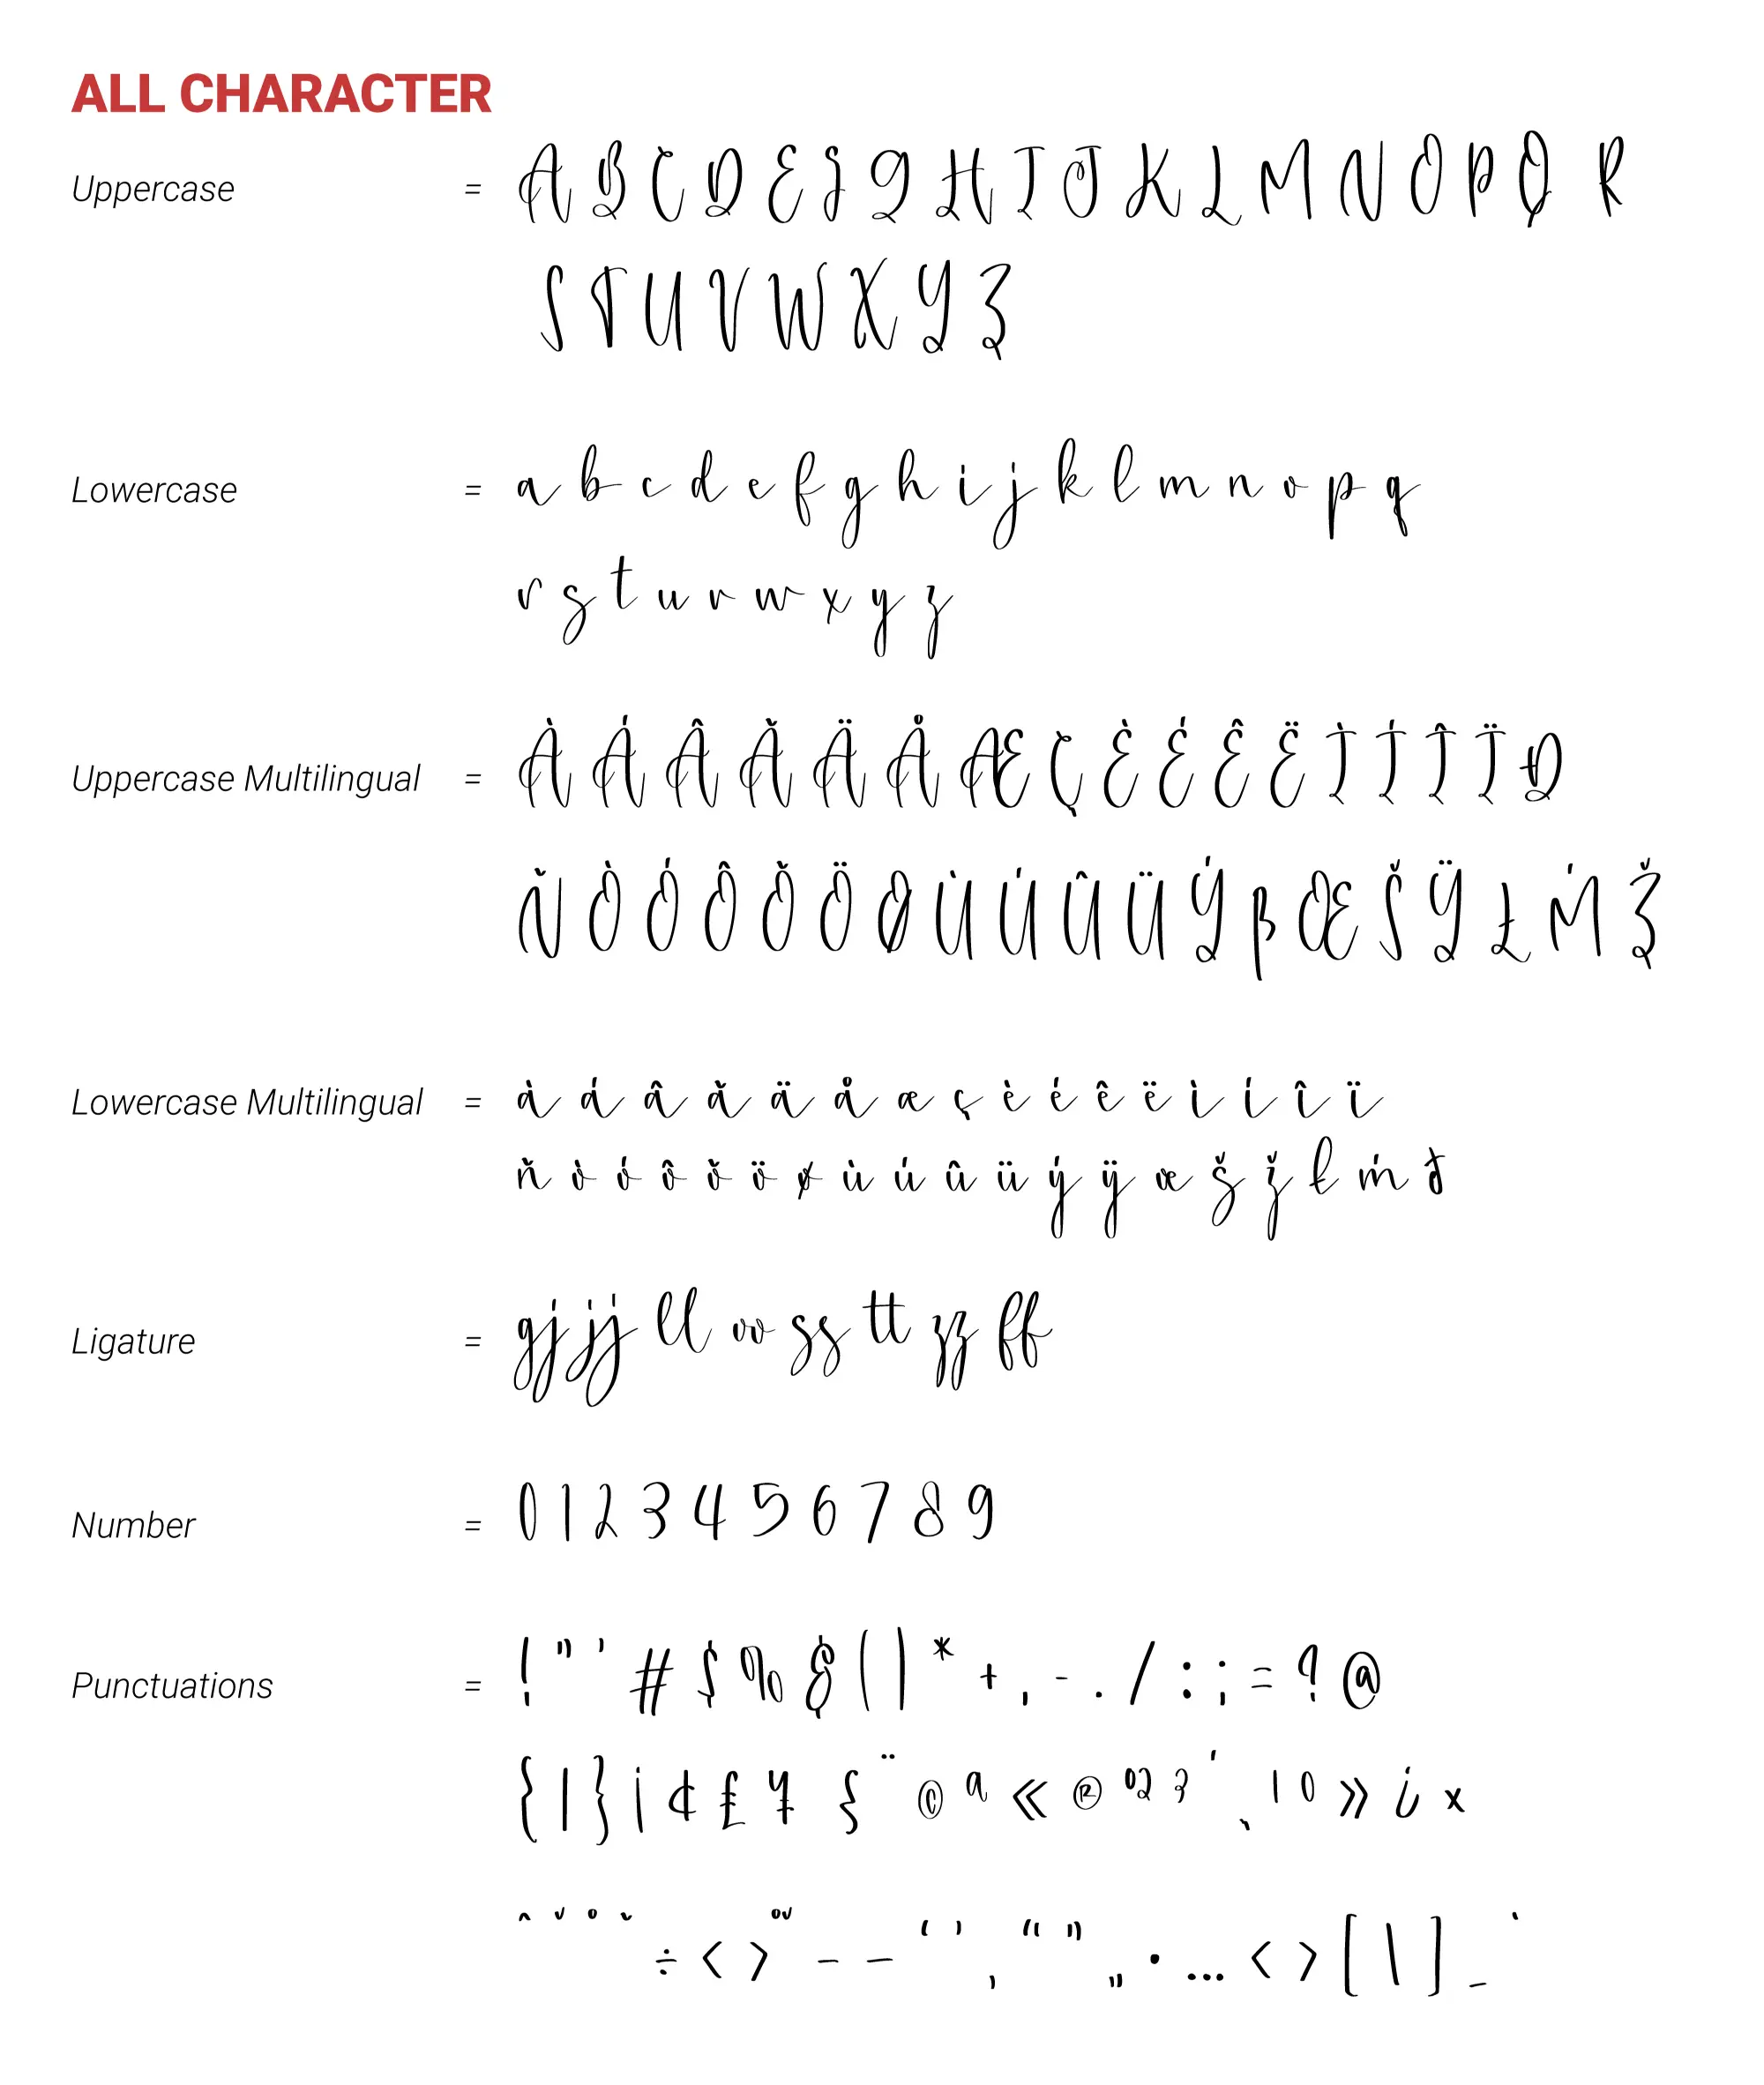 ALL CHARACTER
Uppercase = A B C D E F G H I J K L M N O P Q R
S T U V W X Y Z
Lowercase = a b c d e f g h i j k l m n o p q
r s t u v w x y z
Uppercase Multilingual = À Á Â Ã Ä Å Æ Ç È É Ê Ë Ì Í Î Ï Ð
Ñ Ò Ó Ô Õ Ö Ø Ù Ú Û Ü Ý β Œ Š Ÿ Ł Ḿ Ž
Lowercase Multilingual = à á â ã ä å æ ç è é ê ë ì í î ï
ñ ò ó ô õ ö ø ù ú û ü ý ÿ œ š ž ł ḿ ð
Ligature = gj jj ll oo ss tt zz ff
Number = 0 1 2 3 4 5 6 7 8 9
Punctuations = ! " ' # $ % & ( ) * + , - . / : ; = ? @
{ | } ¡ ¢ £ ¥ § ¨ © ª « ® º 2 3 ´ ¸ 1 0 » ¿ ×
ˆ ˇ ˚ ˜ ÷ < > – — ‘ ’ ‚ “ ” „ • … ‹ › [ \ ] _ `